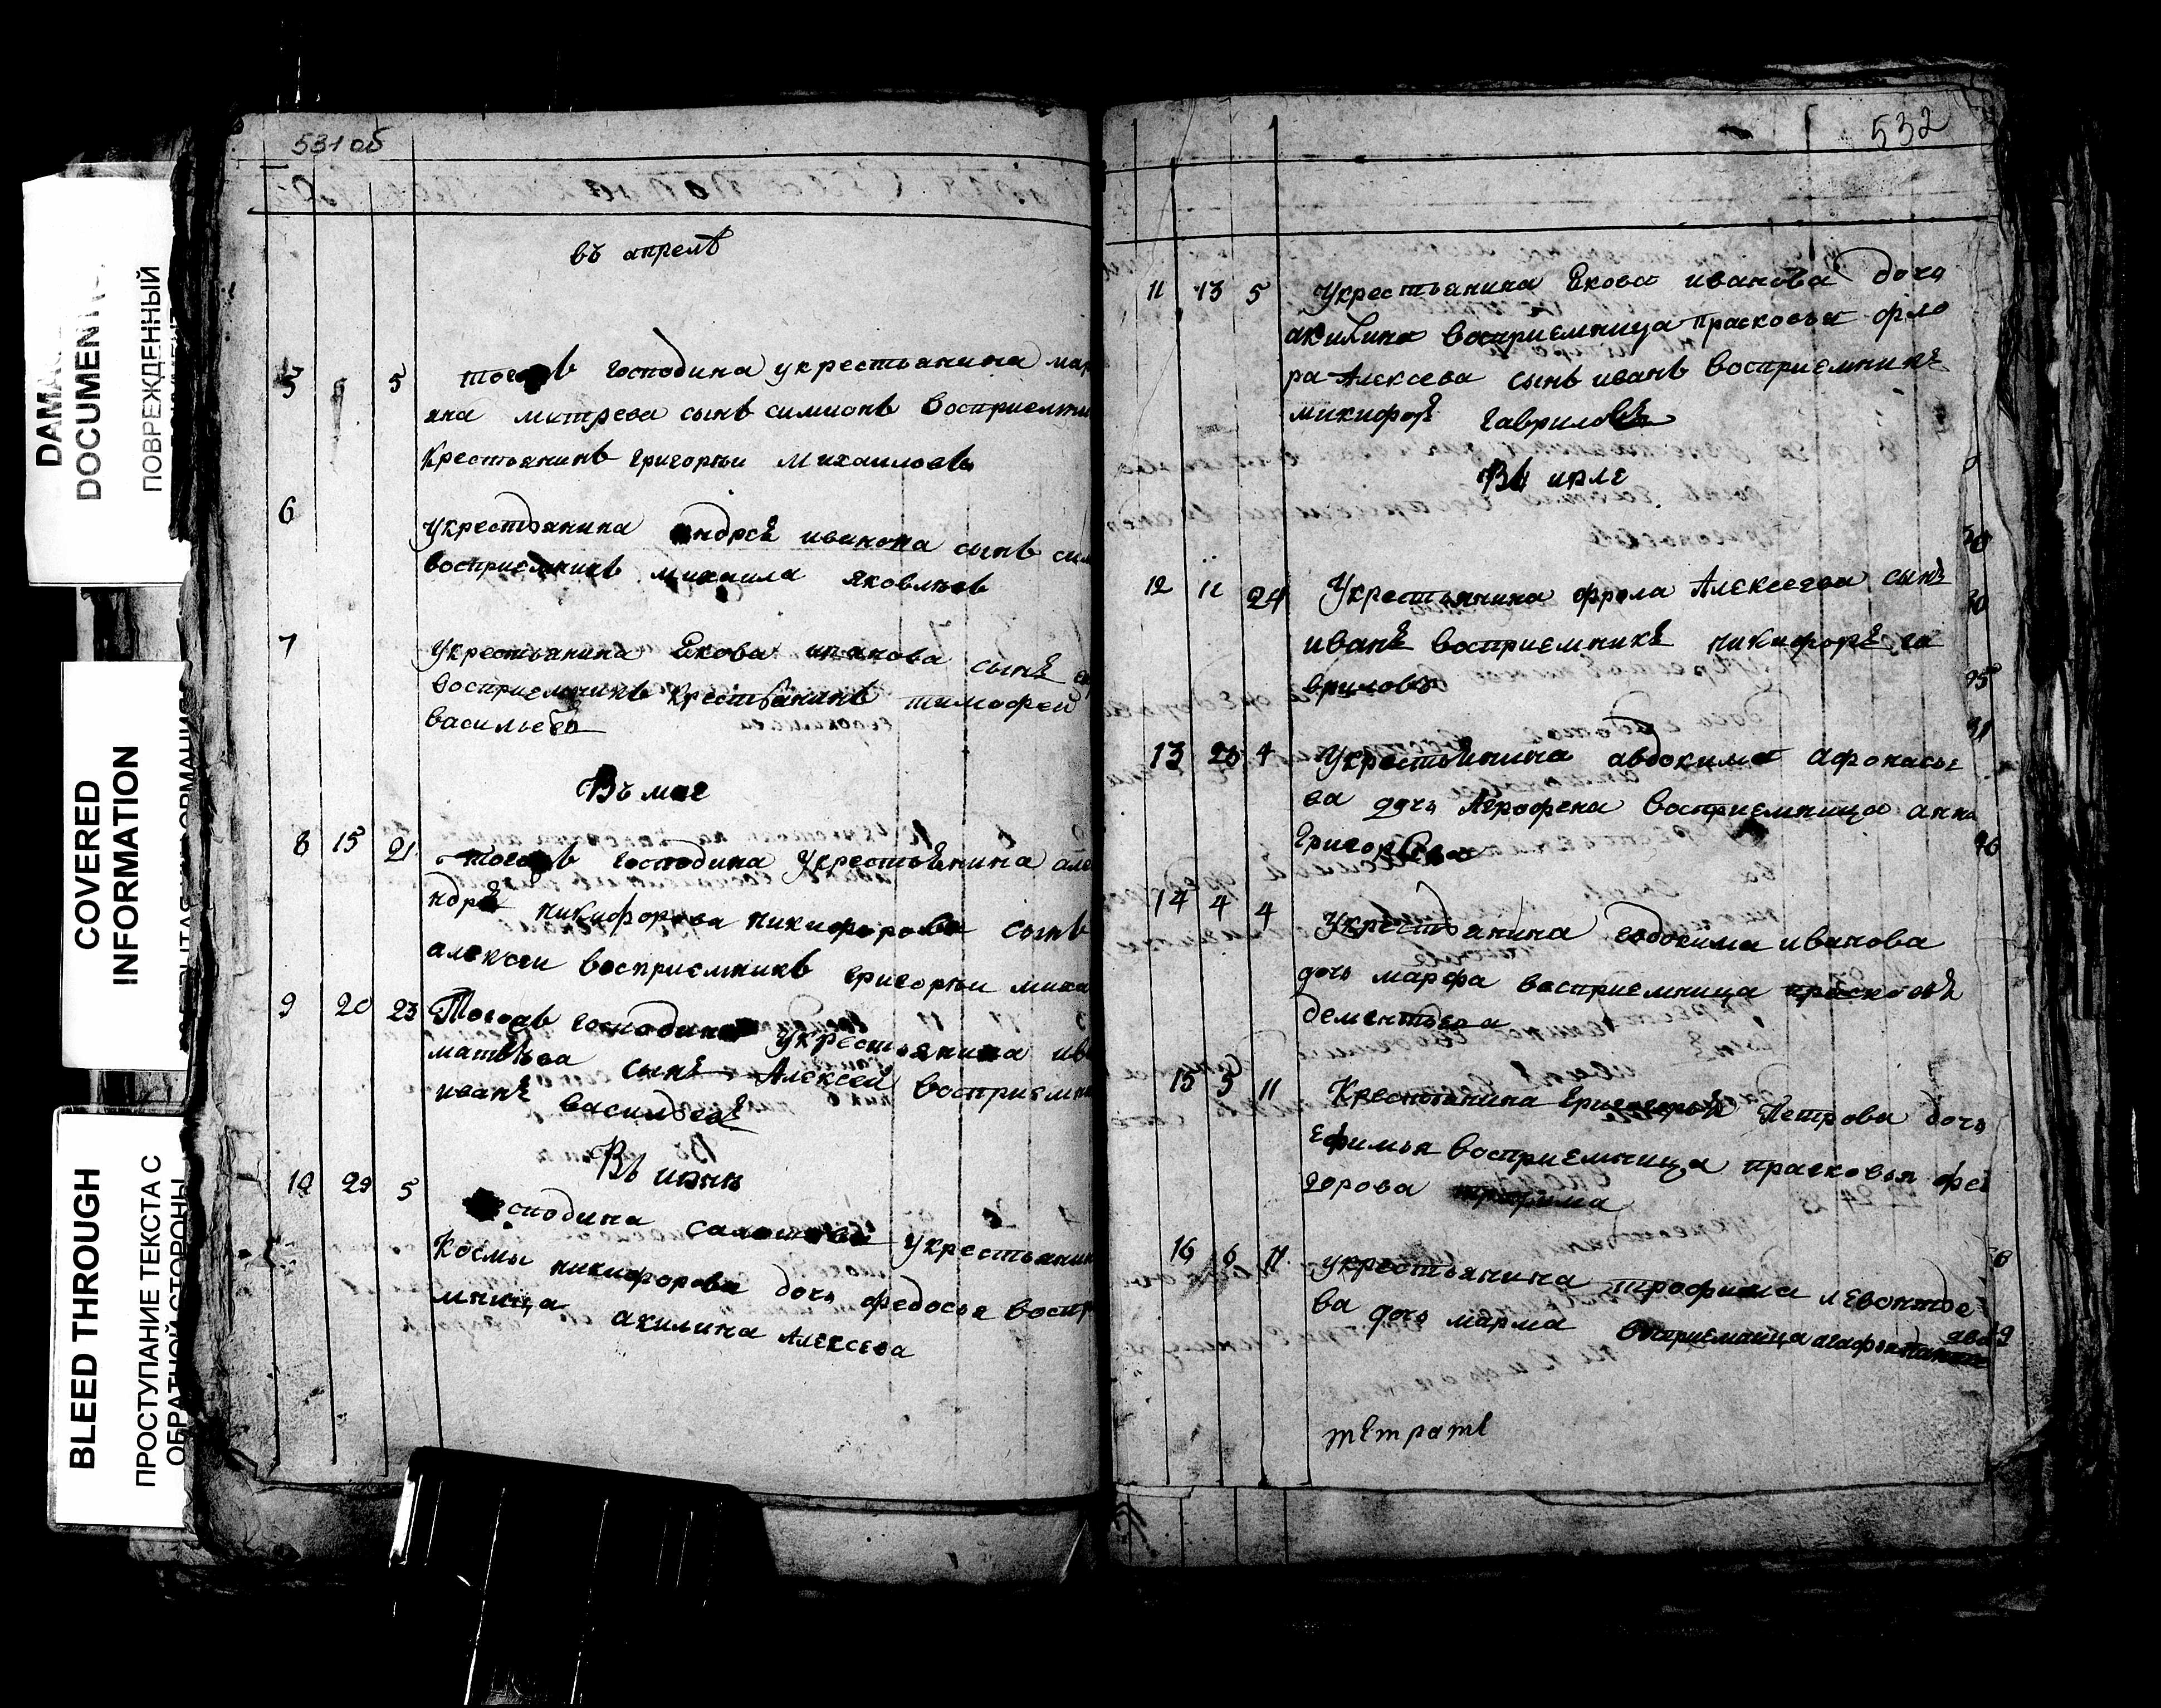 DAMA
DOCUMENT
ПОВРЕЖДЕННЫЙ
COVERED
INFORMATION
BLEED THROUGH
ПРОСТУПАНИЕ ТЕКСТА С
ОБРАТНОЙ СТОРОНЫ
531 об
въ апрелѣ
5 5 господина укрестьянина мар
яна митрева сынъ симионъ восприемни
Крестьянинъ григорѣи михаиловъ
6 укрестьянина андреѣ иванова сынъ сим
восприемникъ михаила яковлѣвъ
7 Укрестьянина Екова иванова сынъ
восприемникъ крестьянинъ тимофей
васильевъ
Въ мае
8 15 21 господина укрестьянина але
ндрѣ никифорова никифорова сынъ
алексеи восприемникъ григорѣи миха
9 20 23 Тогожъ господина укрестьянина ива
матвѣва сынъ Алексей восприемни
иванъ васильевъ
Въ июнѣ
10 29 5 сподина укрестьянин
Космы никифорова дочь федосья воспр
мница акилина Алексева
532
11 13 5 Укрестьянина Екова иванова дочь
акилина восприемница прасковья фло
ра Алексева сынъ иванъ восприемникъ
микифоръ гавриловъ
Въ июле
12 11 24 Укрестьянина фрола Алексеева сынъ
иванъ восприемникъ никифоръ га
вриловъ
13 23 4 Укрестьянина авдокима афонасье
ва дочь Аграфена восприемница анна
григорьева
14 4 4 Укрестьянина евдокима иванова
дочь марфа восприемница прасковѣ
дементьева
15 5 11 Крестьянина Петрова дочь
Ефимья восприемница прасковья фе
дорова
16 6 11 укрестьянина трофима левонтье
ва дочь марма восприемница агафья